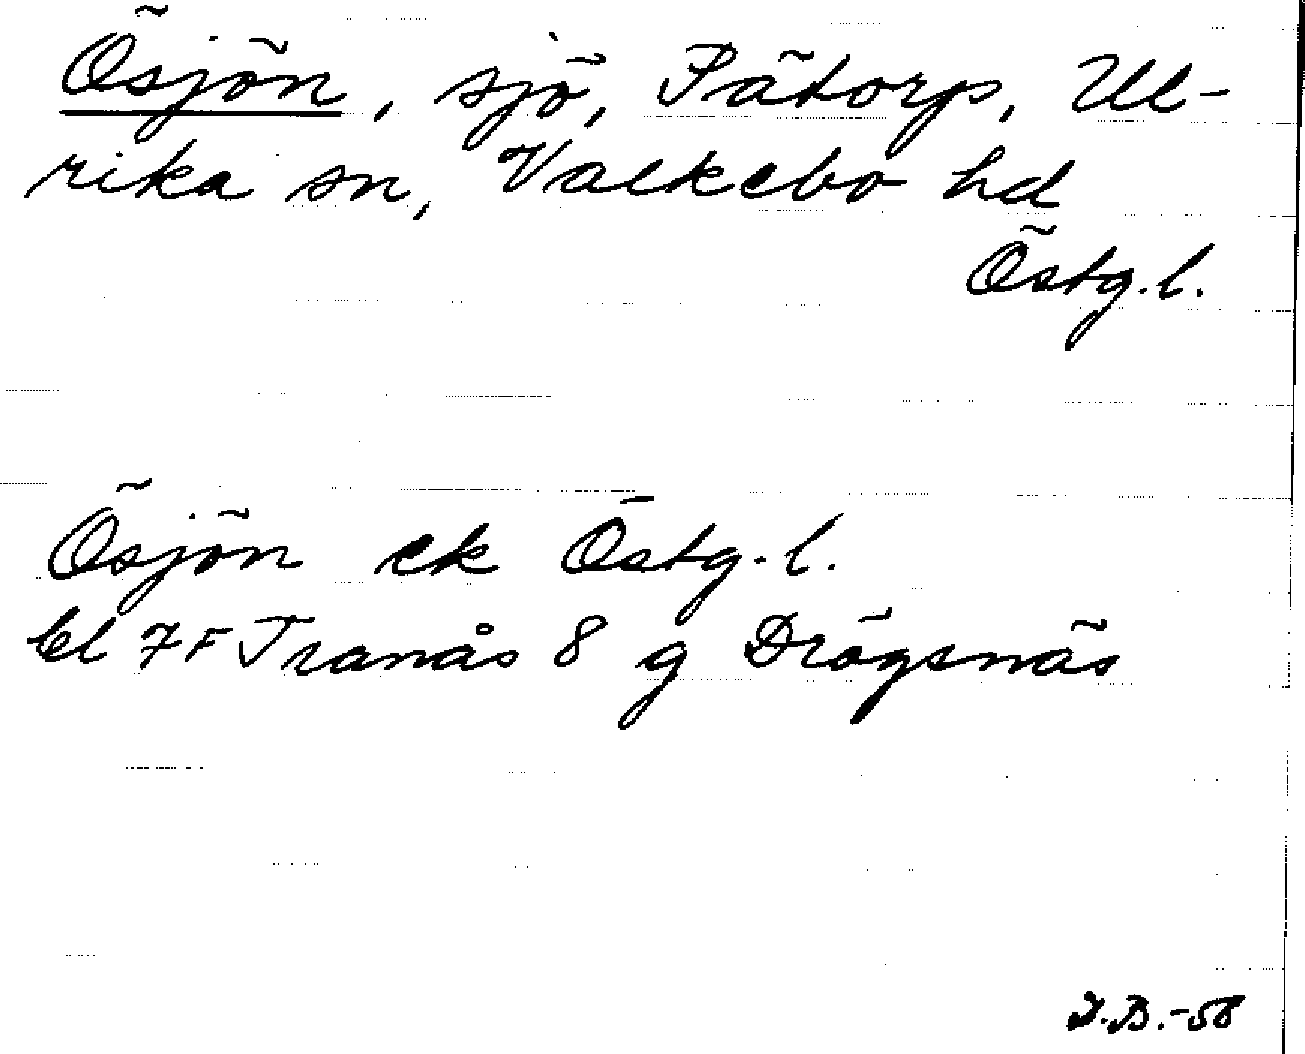 Ösjön, sjö, Pätorp, Ul-
rika sn, Valkebo hd
Östg.l.
Ösjön ek Östg.l.
bl 7F Tranås 8 g Drögsnäs
J.B.-58